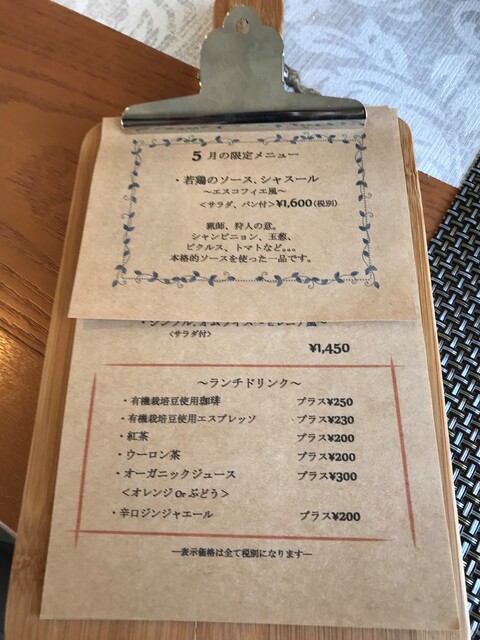 5 月の限定メニュー
・若鶏のソース、シャスール
〜エスコフィエ風〜
<サラダ、パン付>¥1,600(税別)
猟師、狩人の意。
シャンピニョン、玉葱、
ピクルス、トマトなど。。。
本格的ソースを使った一品です。
<サラダ付>
¥1,450
〜ランチドリンク〜
・有機栽培豆使用珈琲 プラス¥250
・有機栽培豆使用エスプレッソ プラス¥230
・紅茶 プラス¥200
・ウーロン茶 プラス¥200
・オーガニックジュース プラス¥300
<オレンジ Or ぶどう>
・辛口ジンジャエール プラス¥200
―表示価格は全て税別になります―